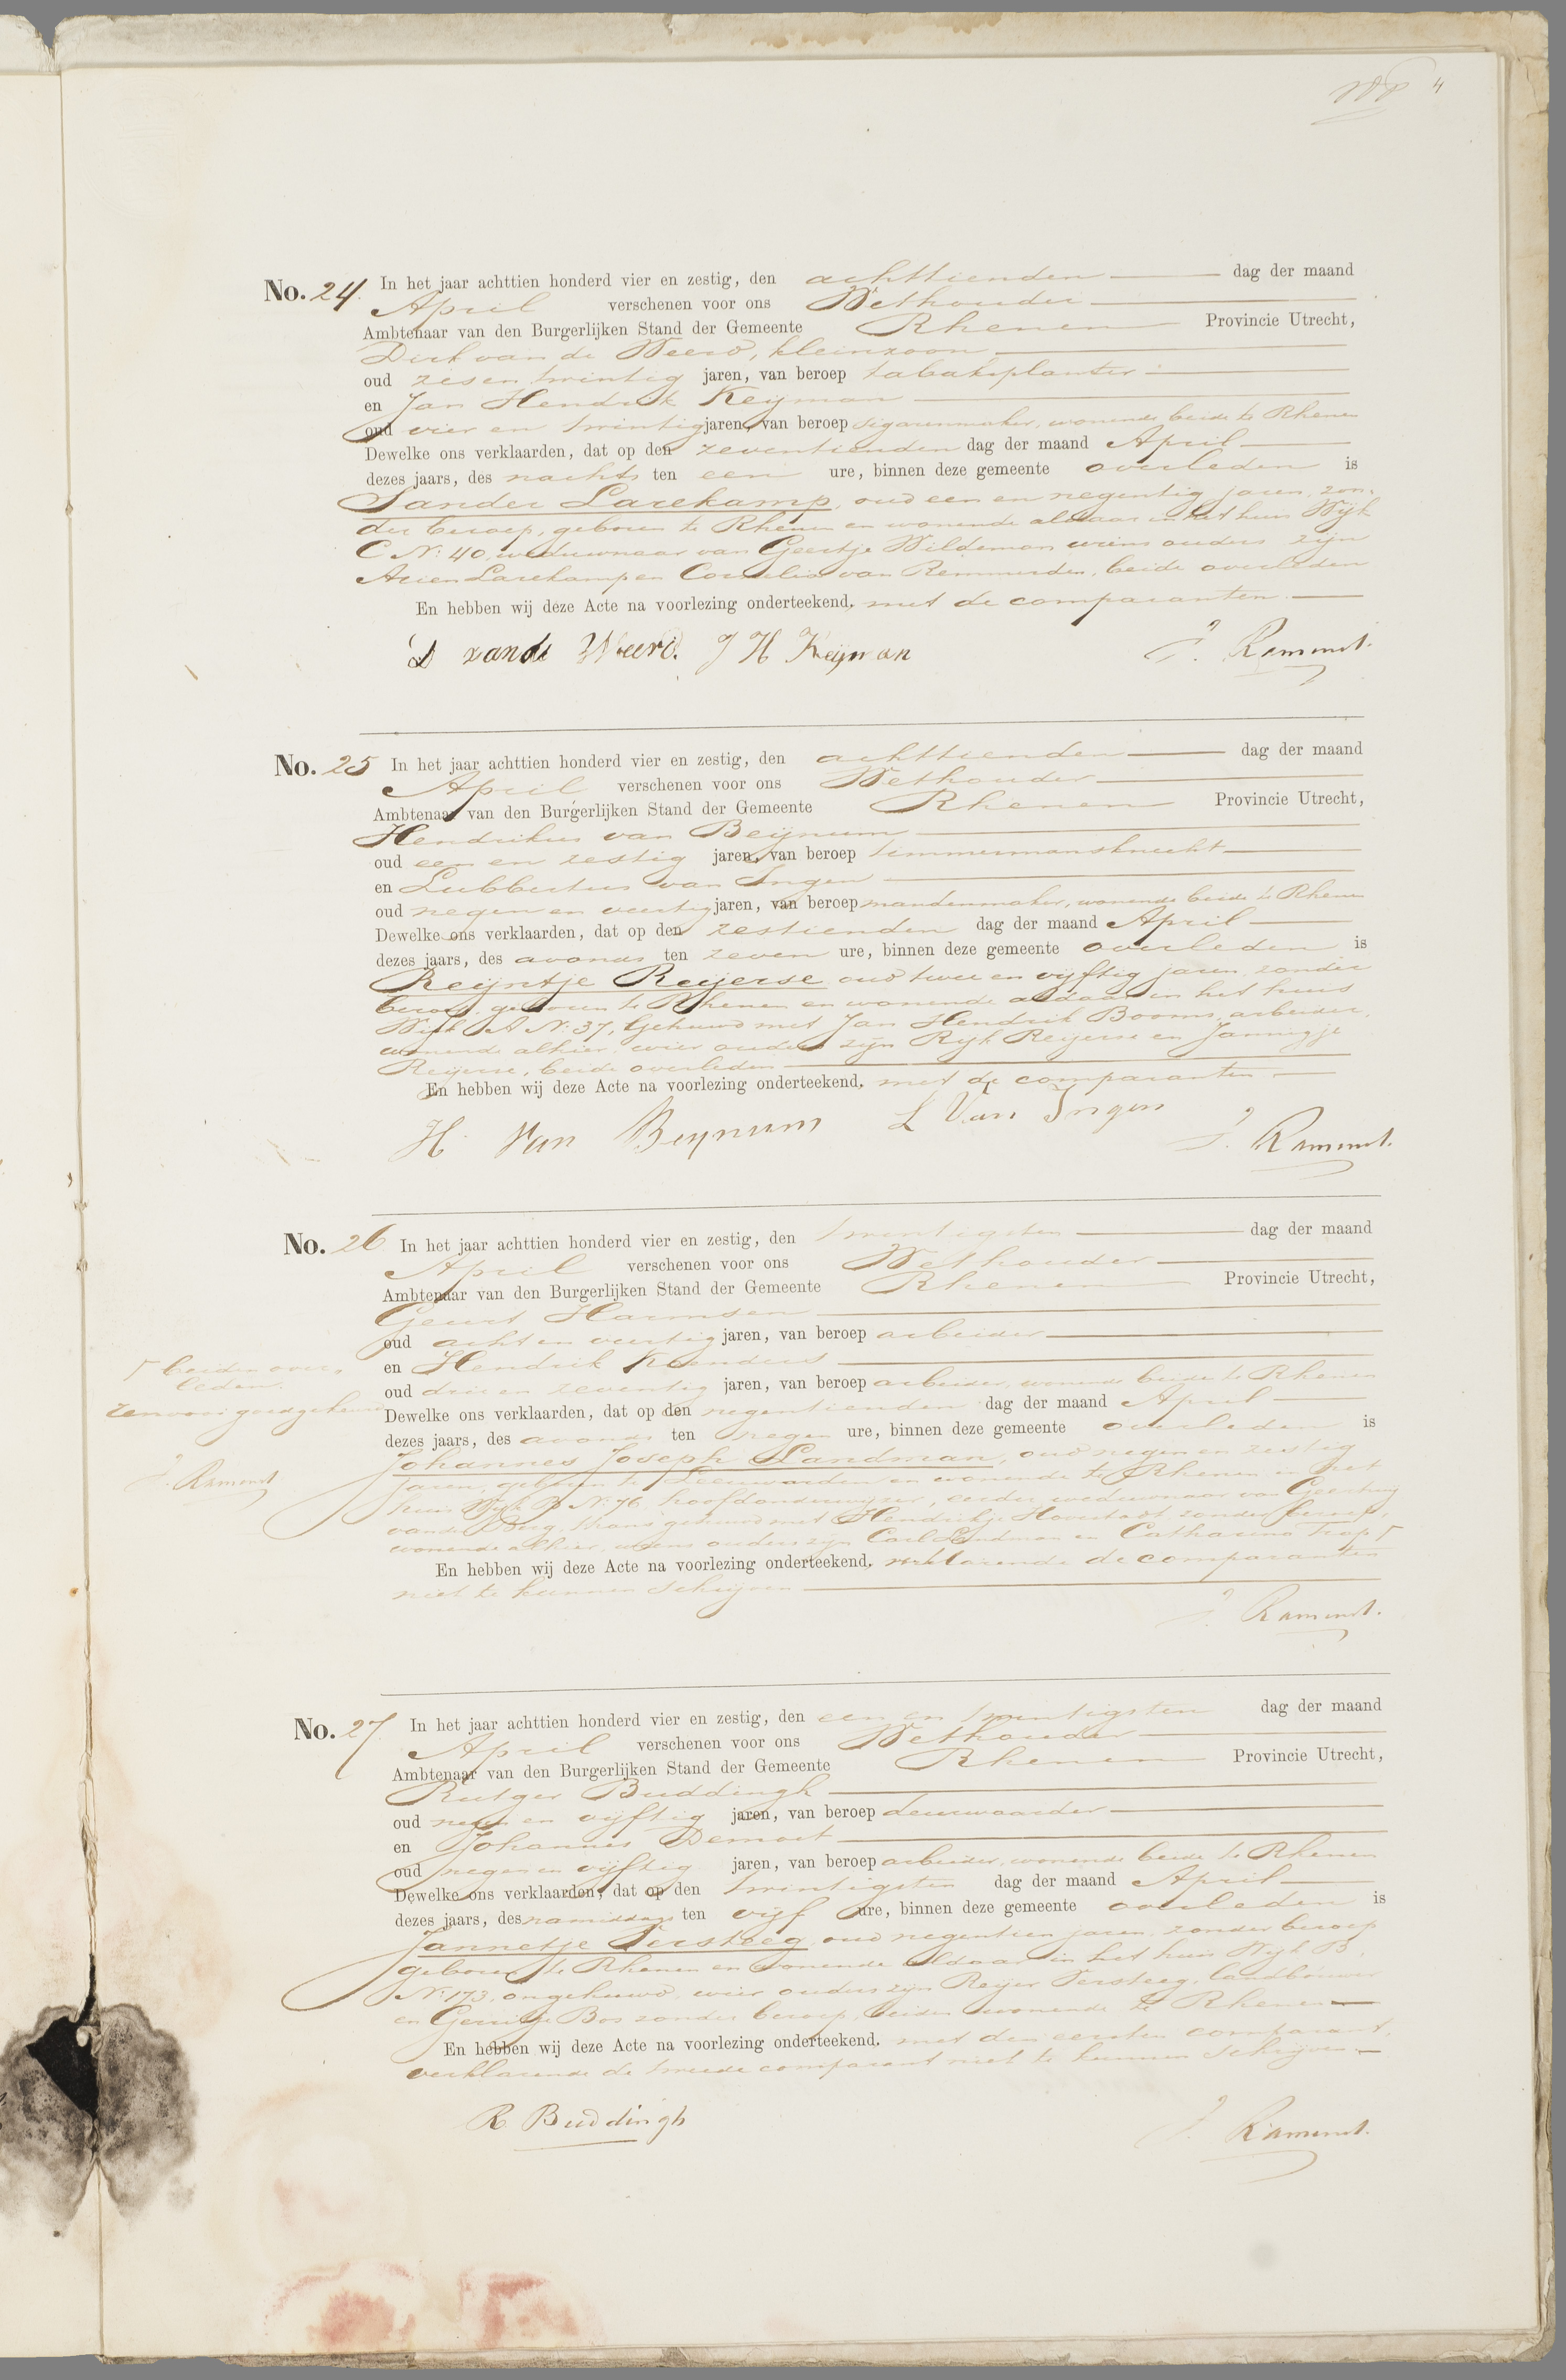 4
No. 24. In het jaar achttien honderd vier en zestig, den achttienden dag der maand
April verschenen voor ons Wethouder
Ambtenaar van den Burgerlijken Stand der Gemeente Rhenen Provincie Utrecht,
Dirk van de Weerd, kleinzoon
oud zes en twintig jaren, van beroep tabakplanter
en Jan Hendrik Keyman
oud vier en twintig jaren, van beroep sigarenmaker, wonende beide te Rhenen
Dewelke ons verklaarden, dat op den zeventienden dag der maand April
dezes jaars, des nachts ten een ure, binnen deze gemeente overleden is
Sander Larekamp, oud een en negentig jaren, zon-
der beroep, geboren te Rhenen en wonende aldaar in het huis Wijk
C No: 40, weduwnaar van Geertje Wildeman wiens ouders zijn
Arien Larekamp en Cornelia van Remmerden, beide overleden
En hebben wij deze Acte na voorlezing onderteekend, met de comparanten.
D van de Weerd. J H Keijman J. Ramondt.
No. 25 In het jaar achttien honderd vier en zestig, den achttienden dag der maand
April verschenen voor ons Wethouder
Ambtenaar van den Burgerlijken Stand der Gemeente Rhenen Provincie Utrecht,
Hendrikus van Beijnum
oud een en zestig jaren, van beroep timmermansknecht
en Lubbertus van Ingen
oud negen en veertig jaren, van beroep mandenmaker, wonende beide te Rhenen
Dewelke ons verklaarden, dat op den zestienden dag der maand April
dezes jaars, des avonds ten zeven ure, binnen deze gemeente overleden is
Reijntje Reijerse oud twee en vijftig jaren, zonder
beroep, geboren te Rhenen en wonende aldaar in het huis
Wijk A No: 37, Gehuwd met Jan Hendrik Booms, arbeider,
wonende alhier, wier ouders zijn Rijk Reijerse en Jannigje
Reijerse, beide overleden
En hebben wij deze Acte na voorlezing onderteekend, met de comparanten
H Van Beynum L Van Ingen J. Ramondt.
No. 26 In het jaar achttien honderd vier en zestig, den twintigsten dag der maand
April verschenen voor ons Wethouder
Ambtenaar van den Burgerlijken Stand der Gemeente Rhenen Provincie Utrecht,
Geurt Harmsen
oud acht en veertig jaren, van beroep arbeider
en Hendrik Koenders
oud drie en zeventig jaren, van beroep arbeider, wonende beide te Rhenen
Dewelke ons verklaarden, dat op den negentienden dag der maand April
dezes jaars, des avonds ten negen ure, binnen deze gemeente overleden is
Johannes Joseph Landman, oud negen en zestig
jaren, geboren te Leeuwarden en wonende te Rhenen in het
huis Wijk B No: 76, hoofdonderwijzer, eerder weduwnaar van Geertruij
van den Berg, thans gehuwd met Hendrikje Hoverstadt, zonder beroep,
wonende alhier, wiens ouders zijn Carl Landman en Catharina Trop
En hebben wij deze Acte na voorlezing onderteekend, verklarende de comparanten
niet te kunnen schrijven
J. Ramondt.
beiden over-
leden.
renvooi goedgekeurd
J. Ramondt
No. 27. In het jaar achttien honderd vier en zestig, den een en twintigsten dag der maand
April verschenen voor ons Wethouder
Ambtenaar van den Burgerlijken Stand der Gemeente Rhenen Provincie Utrecht,
Rutger Buddingh
oud negen en vijftig jaren, van beroep deurwaarder
en Johannes Demoet
oud negen en vijftig jaren, van beroep arbeider, wonende beide te Rhenen
Dewelke ons verklaarden, dat op den twintigsten dag der maand April
dezes jaars, des namiddags ten vijf ure, binnen deze gemeente overleden is
Jannetje Versteeg, oud negentien jaren, zonder beroep
geboren te Rhenen en wonende aldaar in het huis Wijk B,
No: 173, ongehuwd, wier ouders zijn Reijer Versteeg, landbouwer
en Gerritje Bos zonder beroep, beiden wonende te Rhenen
En hebben wij deze Acte na voorlezing onderteekend, met den eersten comparant,
verklarende de tweede comparant niet te kunnen schrijven
R. Buddingh J. Ramondt.